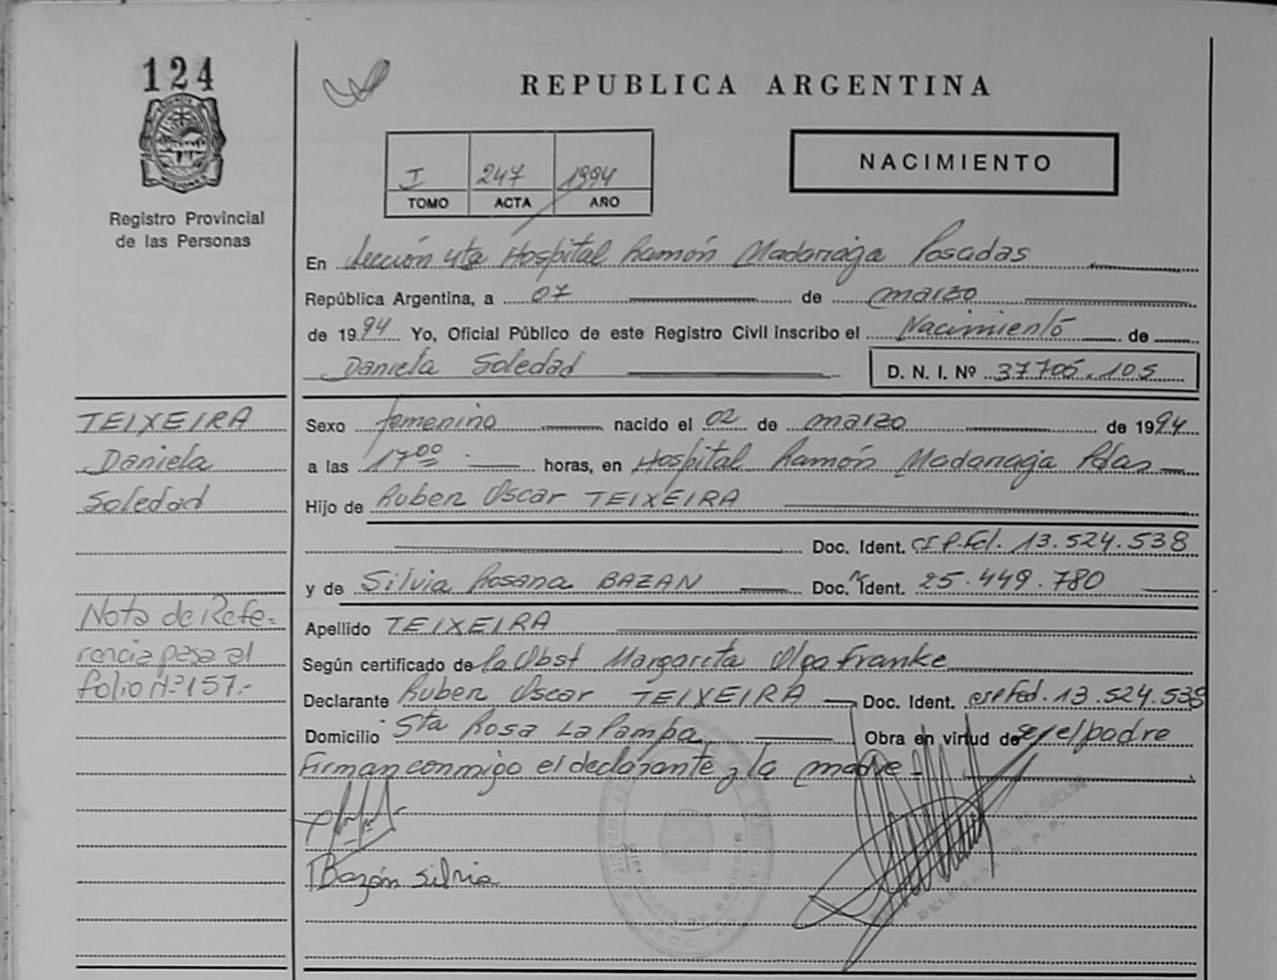 124
REPUBLICA ARGENTINA
I 247 1994
TOMO ACTA AÑO
NACIMIENTO
Registro Provincial
de las Personas
En Sección 4ta Hospital Ramón Madariaga Posadas
República Argentina, a 07 de marzo
de 1994 Yo, Oficial Público de este Registro Civil inscribo el Nacimiento de
Daniela Soledad D. N. I. Nº 37705.105
TEIXEIRA
Daniela
Soledad
Sexo femenino nacido el 02 de marzo de 1994
a las 17 00 horas, en Hospital Ramón Madariaga Pdas
Hijo de Ruben Oscar TEIXEIRA
Doc. Ident. CI P.Fed. 13.524.538
y de Silvia Rosana BAZAN Doc. Ident. 25.449.780
Nota de Refe-
rencia pasa al
folio Nº 157.-
Apellido TEIXEIRA
Según certificado de la Obst Margarita Olga Franke
Declarante Ruben Oscar TEIXEIRA Doc. Ident. CI P Fed. 13.524.538
Domicilio Sta Rosa La Pampa Obra en virtud de ser el padre
Firman conmigo el declarante y la madre.-
Bazán Silvia